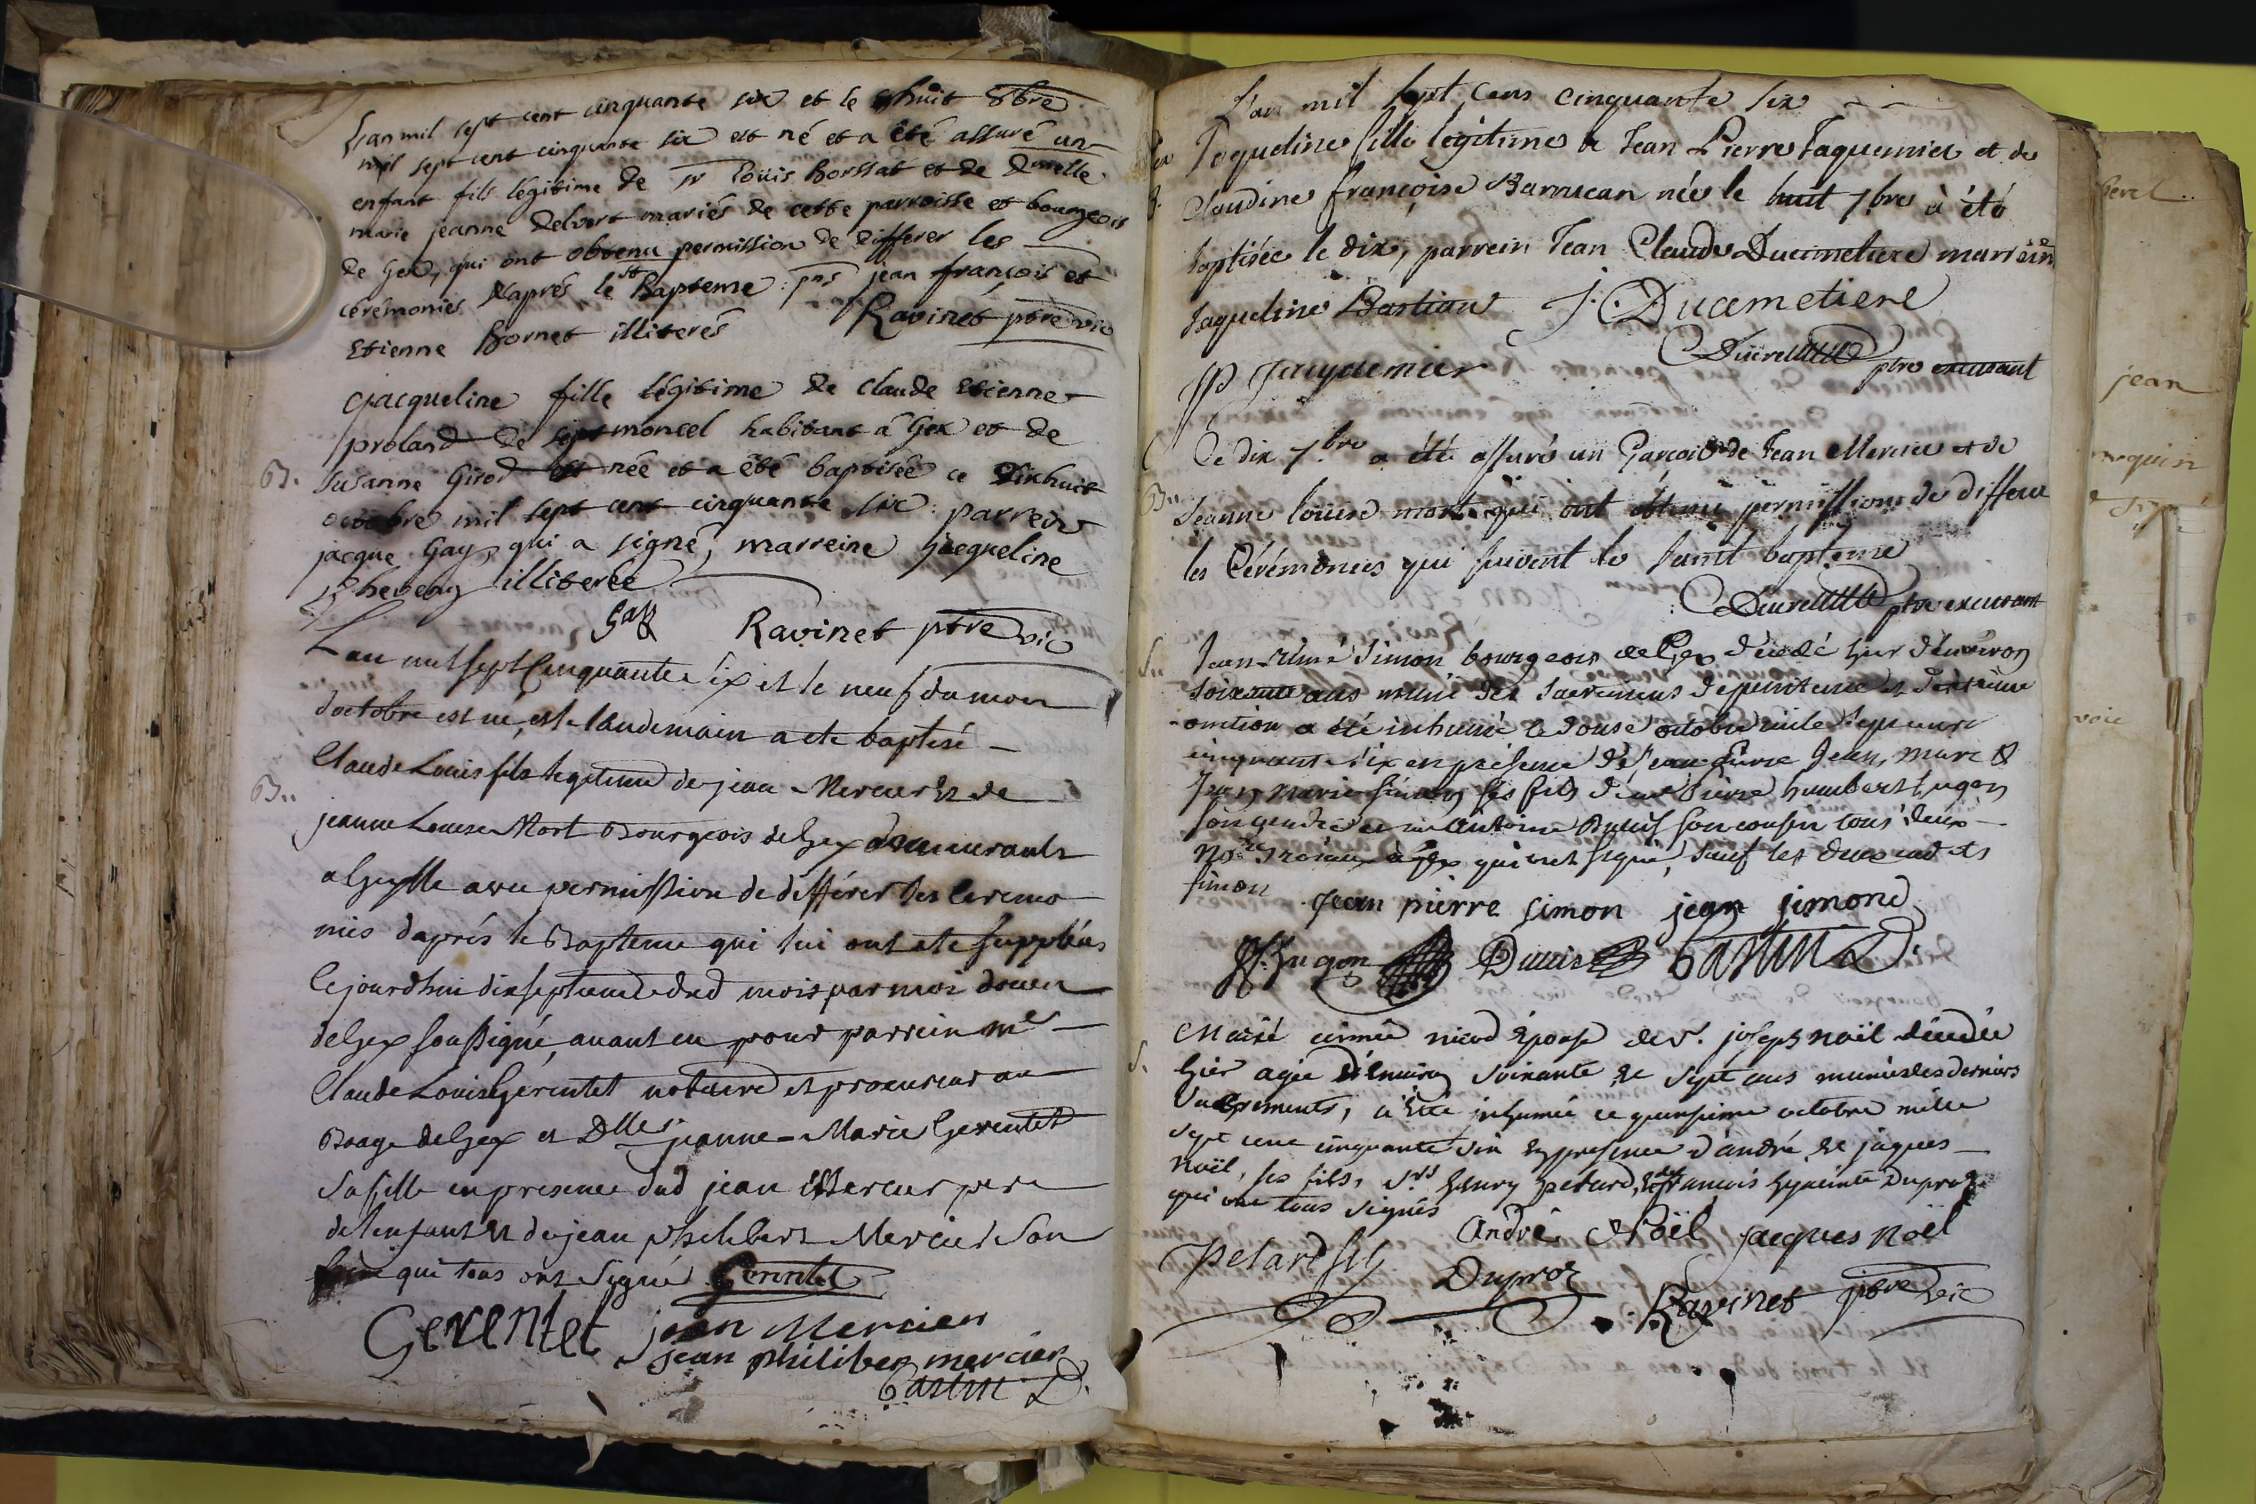 L'an mil sept cent cinquante six et le huit 8bre
mil sept cent cinquante six est né et a été assuré un
enfant fils légitime de Sr Louis Borssat et de Dmelle
marie jeanne Delvert mariés de cette parroisse et bourgeois
de Gex, qui ont obtenu permission de differer les
cérémonies d'après le st Bapteme: pns jean françois et
Etienne Bornet illiterés Ravinet ptre vic
B.
Jacqueline fille légitime de Claude Etienne
proland de septmoncel habitant à Gex et de
Susanne Girod est née et a été baptisée ce dixhuit
octobre mil sept cent cinquante six: parrein
jacque Gay, qui a signé, marreine jacqueline
illiterée
Gay Ravinet ptre vic
L'an mil sept Cinquante six et le neuf du mois
doctobre est né, et le landemain a ete baptisé
B..
Claude Louis fils legitime de jean Mercier et de
jeanne Louise Mort Bourgeois de Gex demeurants
a Gex avec permission de différer les ceremo
nies daprés le Bapteme qui lui ont ete suppléés
Cejourdhui dixseptieme dud mois par moi doïen
de Gex soussigné, aiant eu pour parrein me
Claude Louis Gerentet notaire et procureur au
Bage de Gex et Dlle jeanne-Marie Gerentet
sa fille en presence dud jean Mercier pere
de l'enfant et de jean philibert Mercier son
qui tous ont signé Gerentet
Gerentet jean Mercier
jean philibert mercier
Castin D.
L'an mil sept cens cinquante six
Jaqueline fille légitime de Jean Pierre Jaquemier et de
B.
Claudine françoise Barrucan née le huit 7bre à été
baptisée le dix, parrein Jean Claude Ducimetiere marrein
Jaqueline Bastian J. C. Ducimetiere
JP Jaquemier ptre excusant
Ce dix 7bre a été assuré un Garçoin de Jean Mercier et de
B..
Jeanne louise mort qui ont obtenu permissions de differer
les Cérémonies qui suivent le saint baptême
ptre excusant
S..
Jean-Aimé Simon bourgeois de Gex décédé hier d'environ
soixante ans muni des sacremens de penitence et d'extrême
onction a été inhumé le douse octobre mile sept cent
cinquante six en présence de Jean Pierre Jean, marc &
Jean marie Simon ses fils d'une Pierre humbert hugon
son gendre et me Antoine Duuis son cousin tous deux
Nores roiaux à Gex qui ont signé, sauf les deux cadets
simon
jean pierre simon jean simond
Hugon Duuis Castin D.
S.
Marie aimée nicod Epouse de S. joseph noël décédée
hier agée d'environ soixante et sept ans munie des derniers
Sacrements, a été inhumée ce quinsieme octobre mille
sept cent cinquante six en presence d'andré, et jaques
noël, ses fils, srs henry petard, et francois hyacinte Duproz
qui ont tous signés
andré Noël jacques noël
petard fils Duproz
Ravinet ptre vic
jean
voie